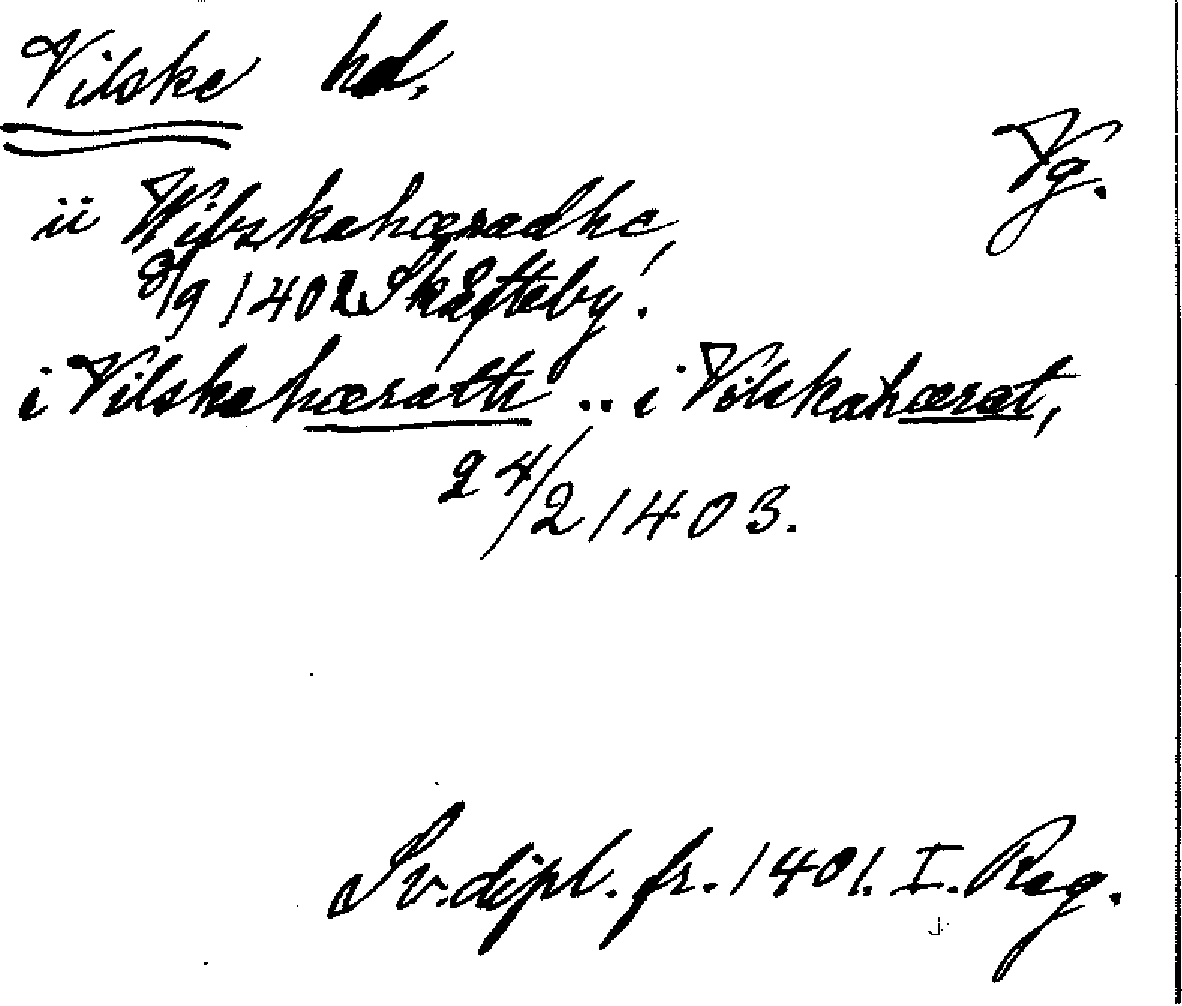 Vilske hd.
Vg.
ii Wilzskahæradhe,
8/9 1402 Skæfteby!
i Vilskahærath .. i Vilskahærat,
24/2 1403.
Sv. dipl. fr. 1401. I. Reg.